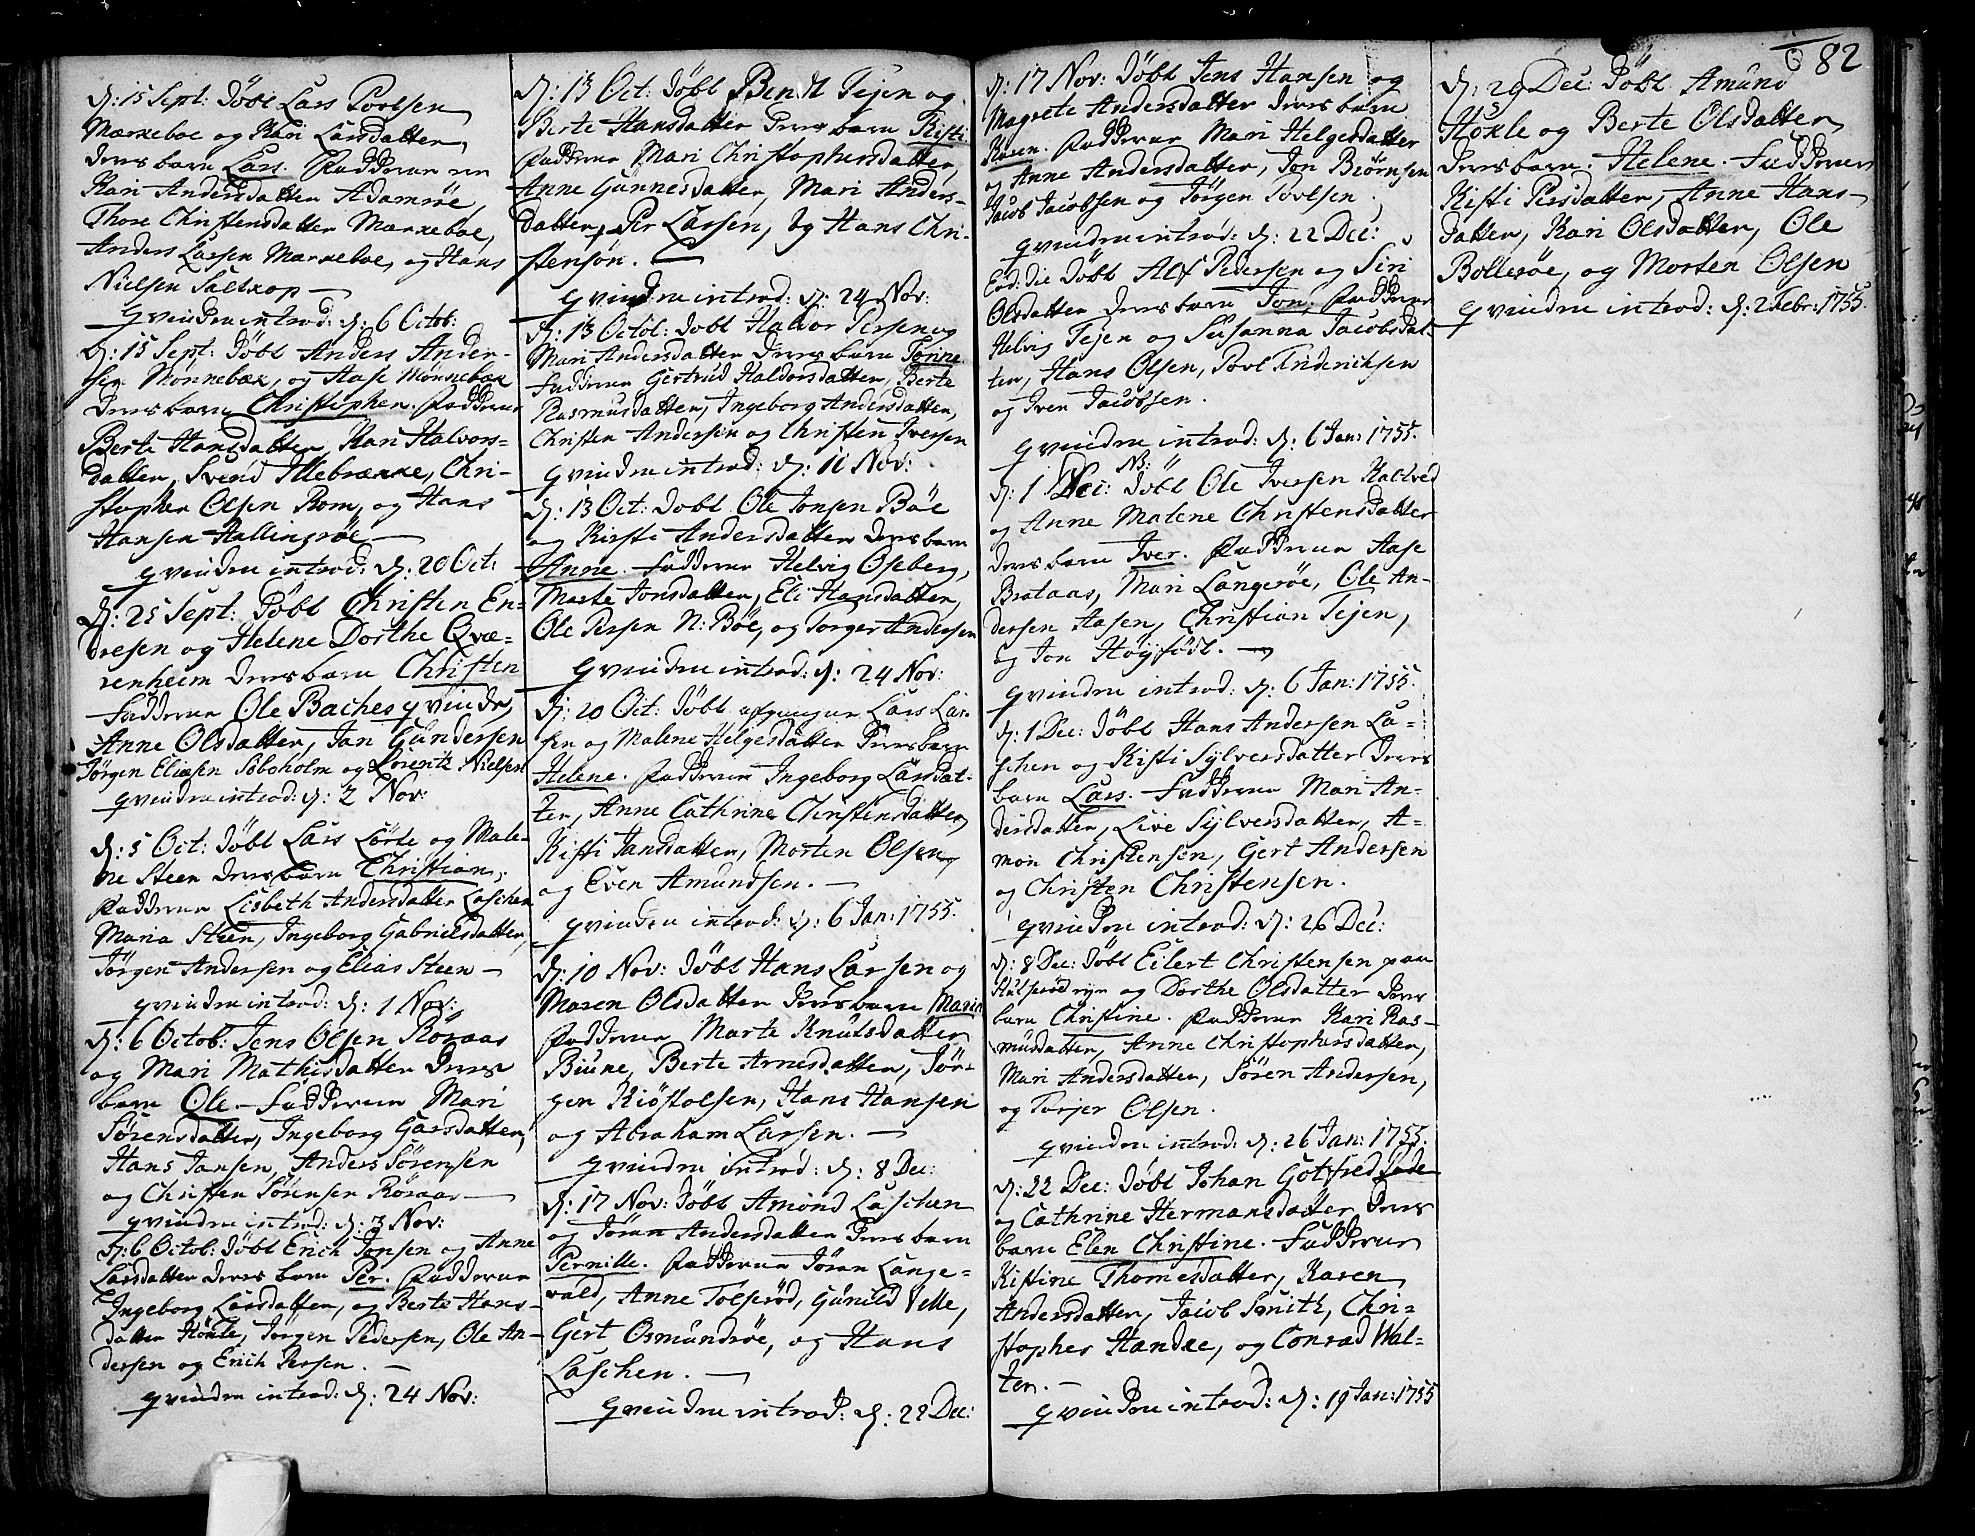 d: 15 Sept: döbt Lars Povlsen
Mærkeboe og Kari Larsdatter
deres barn Lars. Fadderne ere
Kari Andersdatter Adamröe,
Thore Christensdatter Mærkeboe,
Anders Larsen Mærkeboe, og Hans
Nielsen Saltkop —
qvinden introd: d: 6 Octob:
d: 15 Sept: döbt Anders Ander-
sen Mönnebæk, og Aase Mönnebæk
deres barn Christopher. Fadderne
Berte Hansdatter, Kari Halvors-
datter, Svend Illebrække, Chri-
stopher Olsen Rom, og Hans
Hansen Hallingröe —
qvinden introd: d: 20 Oct:
d: 25 Sept: döbt Christen En-
dresen og Helene Dorthe Qvæ-
renheim deres barn Christen
Fadderne Ole Baches qvinde,
Anne Olsdatter, Jan Gundersen
Jörgen Eliæsen Soboholm og Lorentz Nielsen
qvinden introd: d: 2 Nov:
d: 5 Oct: döbt Lars Lörte og Male-
ne Steen deres barn Christian,
Fadderne Lisbeth Andersdatter Laschen
Maria Steen, Ingeborg Gabrielsdatter,
Jörgen Andersen og Elias Steen —
qvinden introd: d: 1 Nov:
d: 6 Octob: Jens Olsen Röraas
og Mari Mathisdatter deres
barn Ole — Fadderne Mari
Sörensdatter, Ingeborg Garsdatter,
Hans Jansen, Anders Sörensen
og Christen Sörensen Röraas —
qvinden introd: d: 3 Nov:
d: 6 Octob: döbt Erich Jonsen og Anne
Larsdatter deres barn Per. Fadderne
Ingeborg Larsdatter, og Berte Hans-
datter Höxle, Jörgen Pedersen, Ole An-
dersen og Erich Persen. —
qvinden introd: d: 24 Nov:
d: 13 Oct: döbt Bendt Tejen og
Berte Hansdatter deres barn Kisti
Fadderne Mari Christophersdatter,
Anne Gunnesdatter, Mari Anders-
datter, Per Larsen, og Hans Chri-
stensön. —
qvinden introd: d: 24 Nov:
d: 13 Octob: döbt Halvor Persen og
Mari Andersdatter deres barn Tonne
Fadderne Gertrud Haldorsdatter, Berte
Rasmusdatter, Ingeborg Andersdatter,
Christen Andersen og Christen Iversen
qvinden introd: d: 11 Nov:
d: 13 Oct: döbt Ole Jonsen Böe
og Kirsti Andersdatter deres barn
Anne. Fadderne Helvig Oseberg,
Marte Jonsdatter, Eli Hansdatter,
Ole Persen N: Böe, og Torger Andersen
qvinden introd: d: 24 Nov:
d: 20 Oct: döbt afgangne Lars Lar-
sen og Malene Helgesdatter deres barn
Helene. Fadderne Ingeborg Larsdat-
ter, Anne Cathrine Christensdatter,
Kisti Jansdatter, Morten Olsen
og Even Amundsen. —
qvinden introd: d: 6 Jan: 1755.
d: 10 Nov: döbt Hans Larsen og
Maren Olsdatter deres barn Maria
Fadderne Marte Knutsdatter
Biune, Berte Arnesdatter, Jör-
gen Kiöstolsen, Hans Hansen
og Abraham Larsen. —
qvinden introd: d: 8 Dec:
d: 17 Nov: döbt Amond Laschen
og Jöran Andersdatter deres barn
Pernille. Fadderne Jöran Lange-
vald, Anne Tolsröd, Gunild Velle,
Gert Osmundröe, og Hans
Laschen. —
qvinden introd: d: 22 Dec:
d: 17 Nov: döbt Jens Hansen og
Magrete Andersdatter deres barn
Karen. Fadderne Mari Helgesdatter
og Anne Andersdatter, Jon Biörnsen
Jacob Jacobsen og Jörgen Povlsen.
qvinden introd: d: 22 Dec:
Eod: die döbt Alf Pedersen og Siri
Olsdatter deres barn Jon, Fadderne
Helvig Tejen og Susanna Jacobsdat-
ter, Hans Olsen, Povl Friderichsen
og Iver Jacobsen.
qvinden introd: d: 6 Jan: 1755.
NB:
d: 1 Dec: döbt Ole Iversen Kaltved
og Anne Malene Christensdatter
deres barn Iver. Fadderne Aase
Brataas, Mari Langeröe, Ole An-
dersen Aasen, Christian Tejen,
og Jon Höyfödt. —
qvinden introd: d: 6 Jan: 1755.
d: 1 Dec: döbt Hans Andersen La-
schen og Kisti Sylversdatter deres
barn Lars. Fadderne Mari An-
dersdatter, Live Sylversdatter, A-
mon Christensen, Gert Andersen
og Christen Christensen.
qvinden introd: d: 26 Dec:
d: 8 Dec: döbt Eilert Christensen paa
og Dorthe Olsdatter deres
barn Christine. Fadderne Kari Ras-
musdatter, Anne Christophersdatter,
Mari Andersdatter, Sören Andersen,
og Torjer Olsen.
qvinden introd: d: 26 Jan: 1755.
d: 22 Dec: döbt Johan Gotfred
og Cathrine Hermansdatter deres
barn Elen Christine. Fadderne
Kistine Thomesdatter, Karen
Andersdatter, Jacob Smith, Chri-
stopher Handke, og Conrad Wal-
ter. —
qvinden introd: d: 19 Jan: 1755
82
d: 29 Dec: döbt Amund
Höxle og Berte Olsdatter
deres barn. Helene. Fadderne
Kisti Persdatter, Anne Hans-
datter, Kari Olsdatter, Ole
Bolleröe, og Morten Olsen
qvinden introd: d: 2 Febr: 1755.